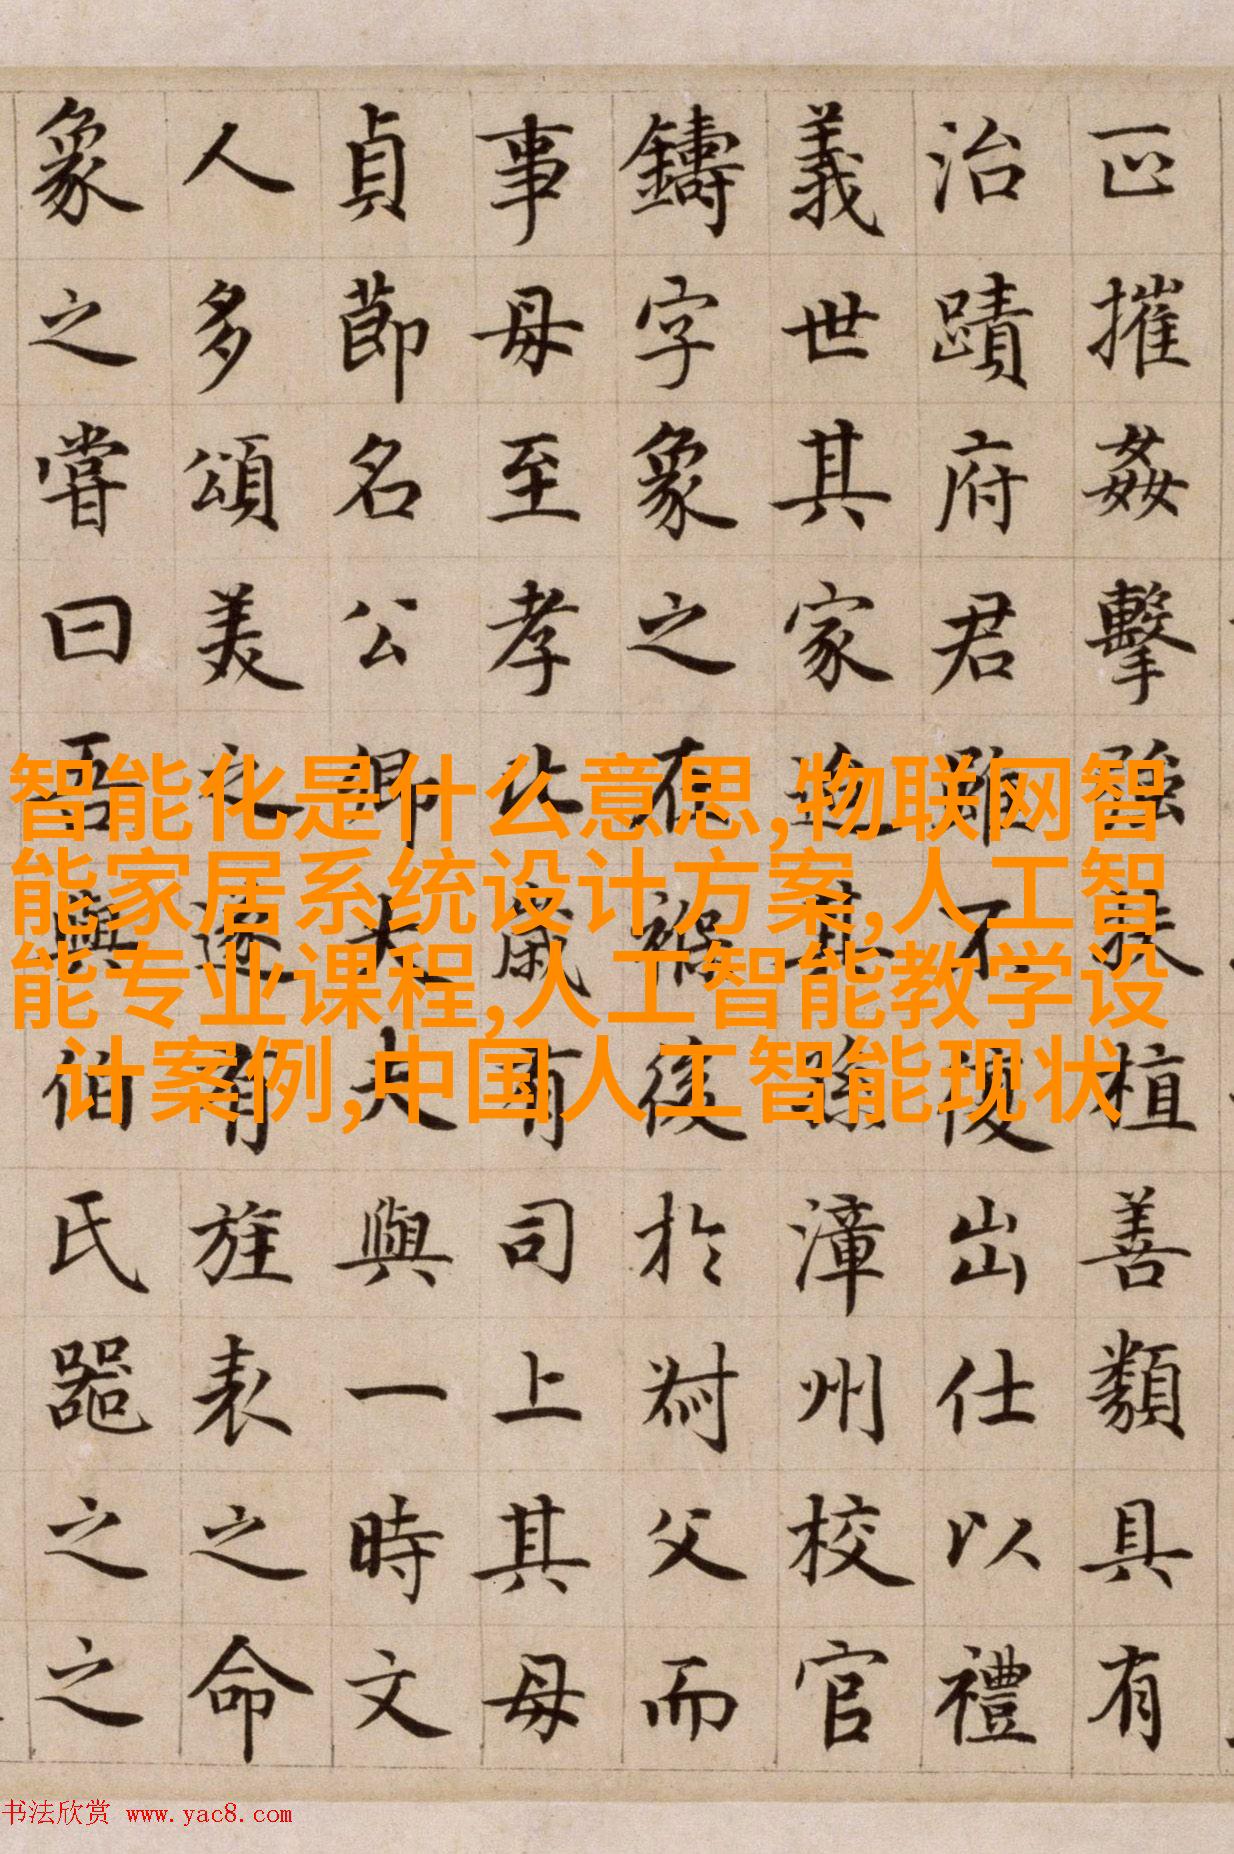 摧姦擊强扶植善類具有
治蹟府君雖不復出仕以禮
義世其家迨其孫漳州校官
鑄字象之在褓後於父而
事母至孝比歲有司上其母
貞節名公卿大夫與一時文
人多頌美之遂有旌表之命
象之嘗曰吾與伯氏器之之
智能化是什么意思,物联网智
能家居系统设计方案,人工智
能专业课程,人工智能教学设
计案例,中国人工智能现状
书法欣赏 www.yac8.com